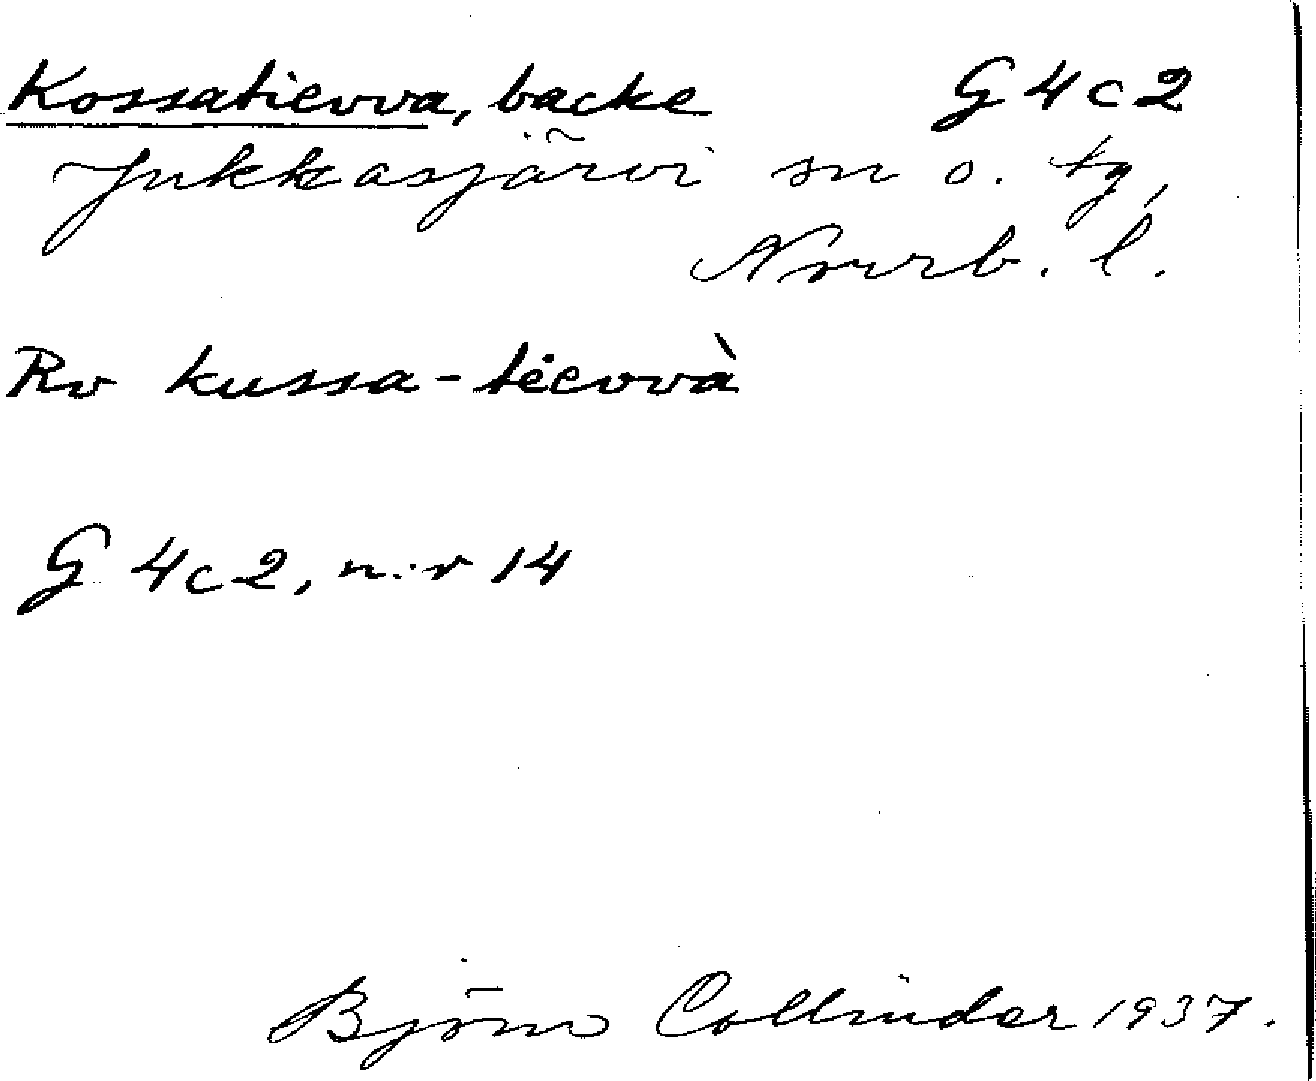 Kossatievva, backe G4c2
Jukkasjärvi sn o. tg,
Norrb. l.
Rv kussa-tĕevvà
G 4c2, n:r 14
Björn Collinder 1937.